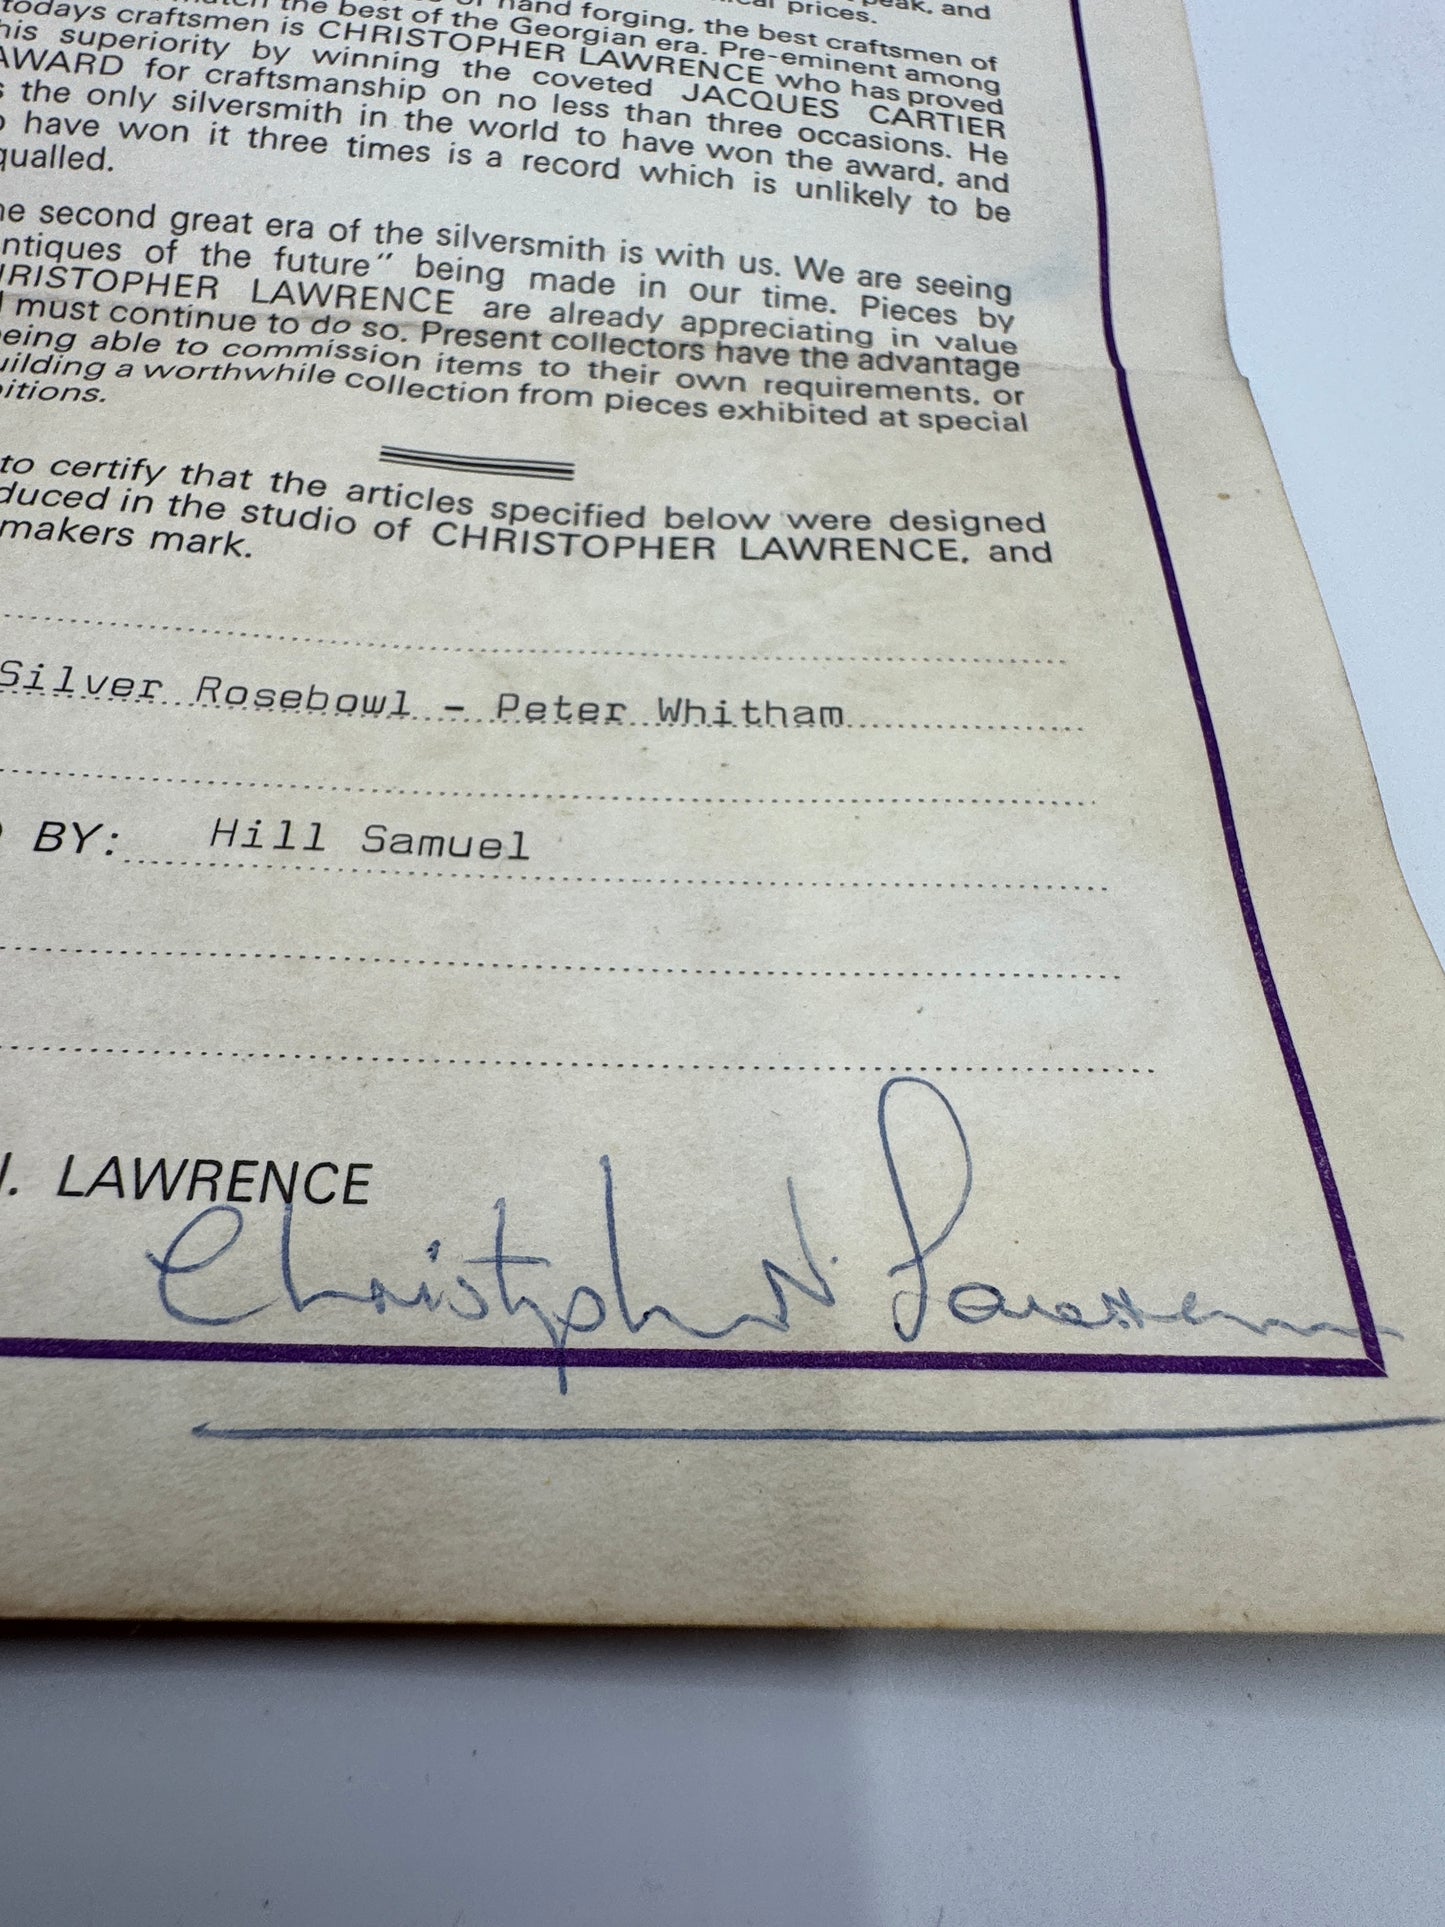 peak, and
al prices.
hand forging, the best craftsmen of
the best of the Georgian era. Pre-eminent among
todays craftsmen is CHRISTOPHER LAWRENCE who has proved
his superiority by winning the coveted JACQUES CARTIER
AWARD for craftsmanship on no less than three occasions. He
s the only silversmith in the world to have won the award, and
o have won it three times is a record which is unlikely to be
qualled.
he second great era of the silversmith is with us. We are seeing
ntiques of the future" being made in our time. Pieces by
HRISTOPHER LAWRENCE are already appreciating in value
d must continue to do so. Present collectors have the advantage
eing able to commission items to their own requirements, or
uilding a worthwhile collection from pieces exhibited at special
bitions.
to certify that the articles specified below were designed
duced in the studio of CHRISTOPHER LAWRENCE, and
makers mark.
Silver Rosebowl - Peter Whitham
BY: Hill Samuel
N. LAWRENCE
Christopher N. Lawrence